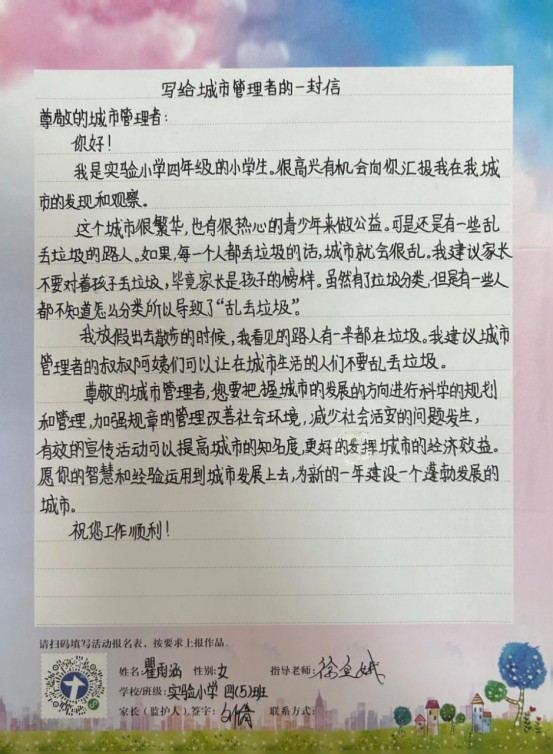 写给城市管理者的一封信
尊敬的城市管理者：
你好！
我是实验小学四年级的小学生。很高兴有机会向你汇报我在我城
市的发现和观察。
这个城市很繁华，也有很热心的青少年来做公益。可是还是有一些乱
丢垃圾的路人。如果，每一个人都丢垃圾的话，城市就会很乱。我建议家长
不要对着孩子丢垃圾，毕竟家长是孩子的榜样。虽然有了垃圾分类，但是有一些人
都不知道怎么分类所以导致了“乱丢垃圾”。
我放假出去散步的时候，我看见的路人有一半都在垃圾。我建议城市
管理者的叔叔阿姨们可以让在城市生活的人们不要乱丢垃圾。
尊敬的城市管理者，您要把握城市的发展的方向进行科学的规划
和管理，加强规章的管理改善社会环境，减少社会治安的问题发生，
有效的宣传活动可以提高城市的知名度，更好的发挥城市的经济效益。
愿你的智慧和经验运用到城市发展上去，为新的一年建设一个蓬勃发展的
城市。
祝您工作顺利！
请扫码填写活动报名表，按要求上报作品。
姓名：瞿雨涵 性别：女 指导老师：徐
学校/班级：实验小学 四(5)班
家长（监护人）签字： 联系方式：